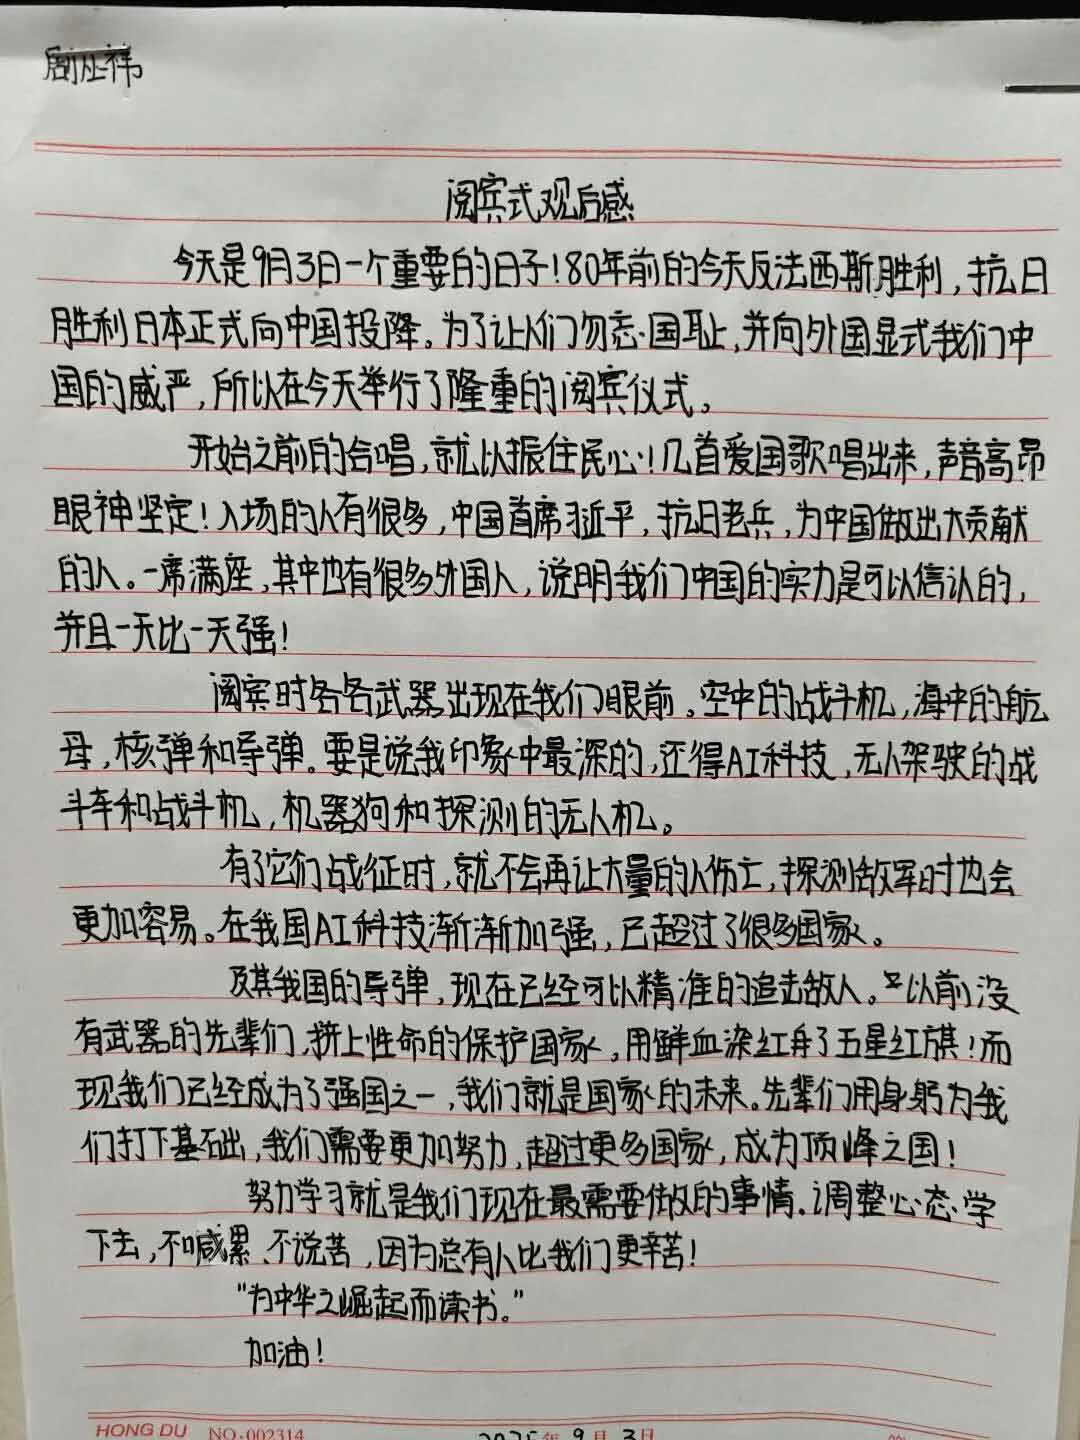 阅宾式观后感
今天是9月3日一个重要的日子!80年前的今天反法西斯胜利,抗日
胜利日本正式向中国投降。为了让人们勿忘国耻,并向外国显式我们中
国的威严,所以在今天举行了隆重的阅宾仪式。
开始之前的合唱,就以振住民心!几首爱国歌唱出来,声音高昂
眼神坚定!入场的人有很多,中国首席习近平,抗日老兵,为中国做出大贡献
的人。一席满座,其中也有很多外国人,说明我们中国的实力是可以信认的,
并且一天比一天强!
阅宾时各各武器出现在我们眼前。空中的战斗机,海中的航
母,核弹和导弹。要是说我印象中最深的,还得AI科技,无人驾驶的战
斗车和战斗机,机器狗和探测的无人机。
有了它们战征时,就不会再让大量的人伤亡,探测敌军时也会
更加容易。在我国AI科技渐渐加强,已超过了很多国家。
及其我国的导弹,现在已经可以精准的追击敌人。以前没
有武器的先辈们,拼上性命的保护国家,用鲜血染红了五星红旗!而
现我们已经成为了强国之一,我们就是国家的未来。先辈们用身躬为我
们打下基础,我们需要更加努力,超过更多国家,成为顶峰之国!
努力学习就是我们现在最需要做的事情。调整心态学
下去,不喊累、不说苦,因为总有人比我们更辛苦!
"为中华之崛起而读书。"
加油!
HONG DU NO.002314 2025年9月3日